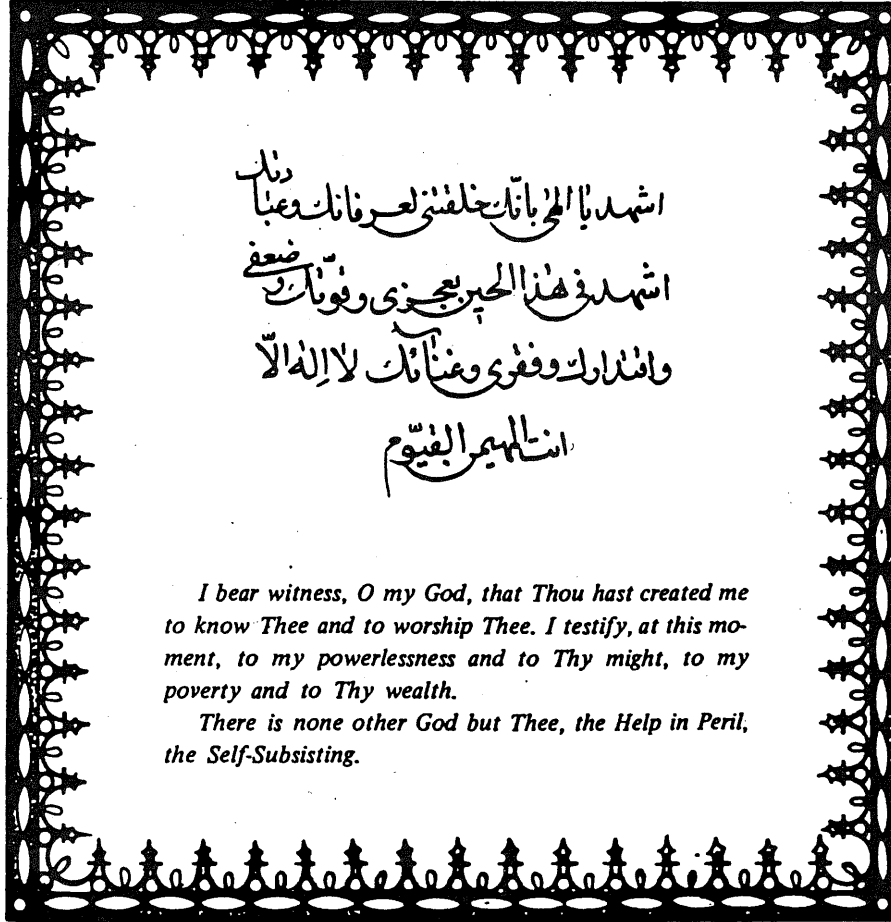 اشهد یا الهی بانّک خلقتنی لعرفانک وعبادتک
اشهد فی هذا الحین بعجزی وقوّتک وضعفی
واقتدارک وفقری وغنائک لا اله الّا
انت المهیمن القیّوم
I bear witness, O my God, that Thou hast created me
to know Thee and to worship Thee. I testify, at this mo-
ment, to my powerlessness and to Thy might, to my
poverty and to Thy wealth.
There is none other God but Thee, the Help in Peril,
the Self-Subsisting.